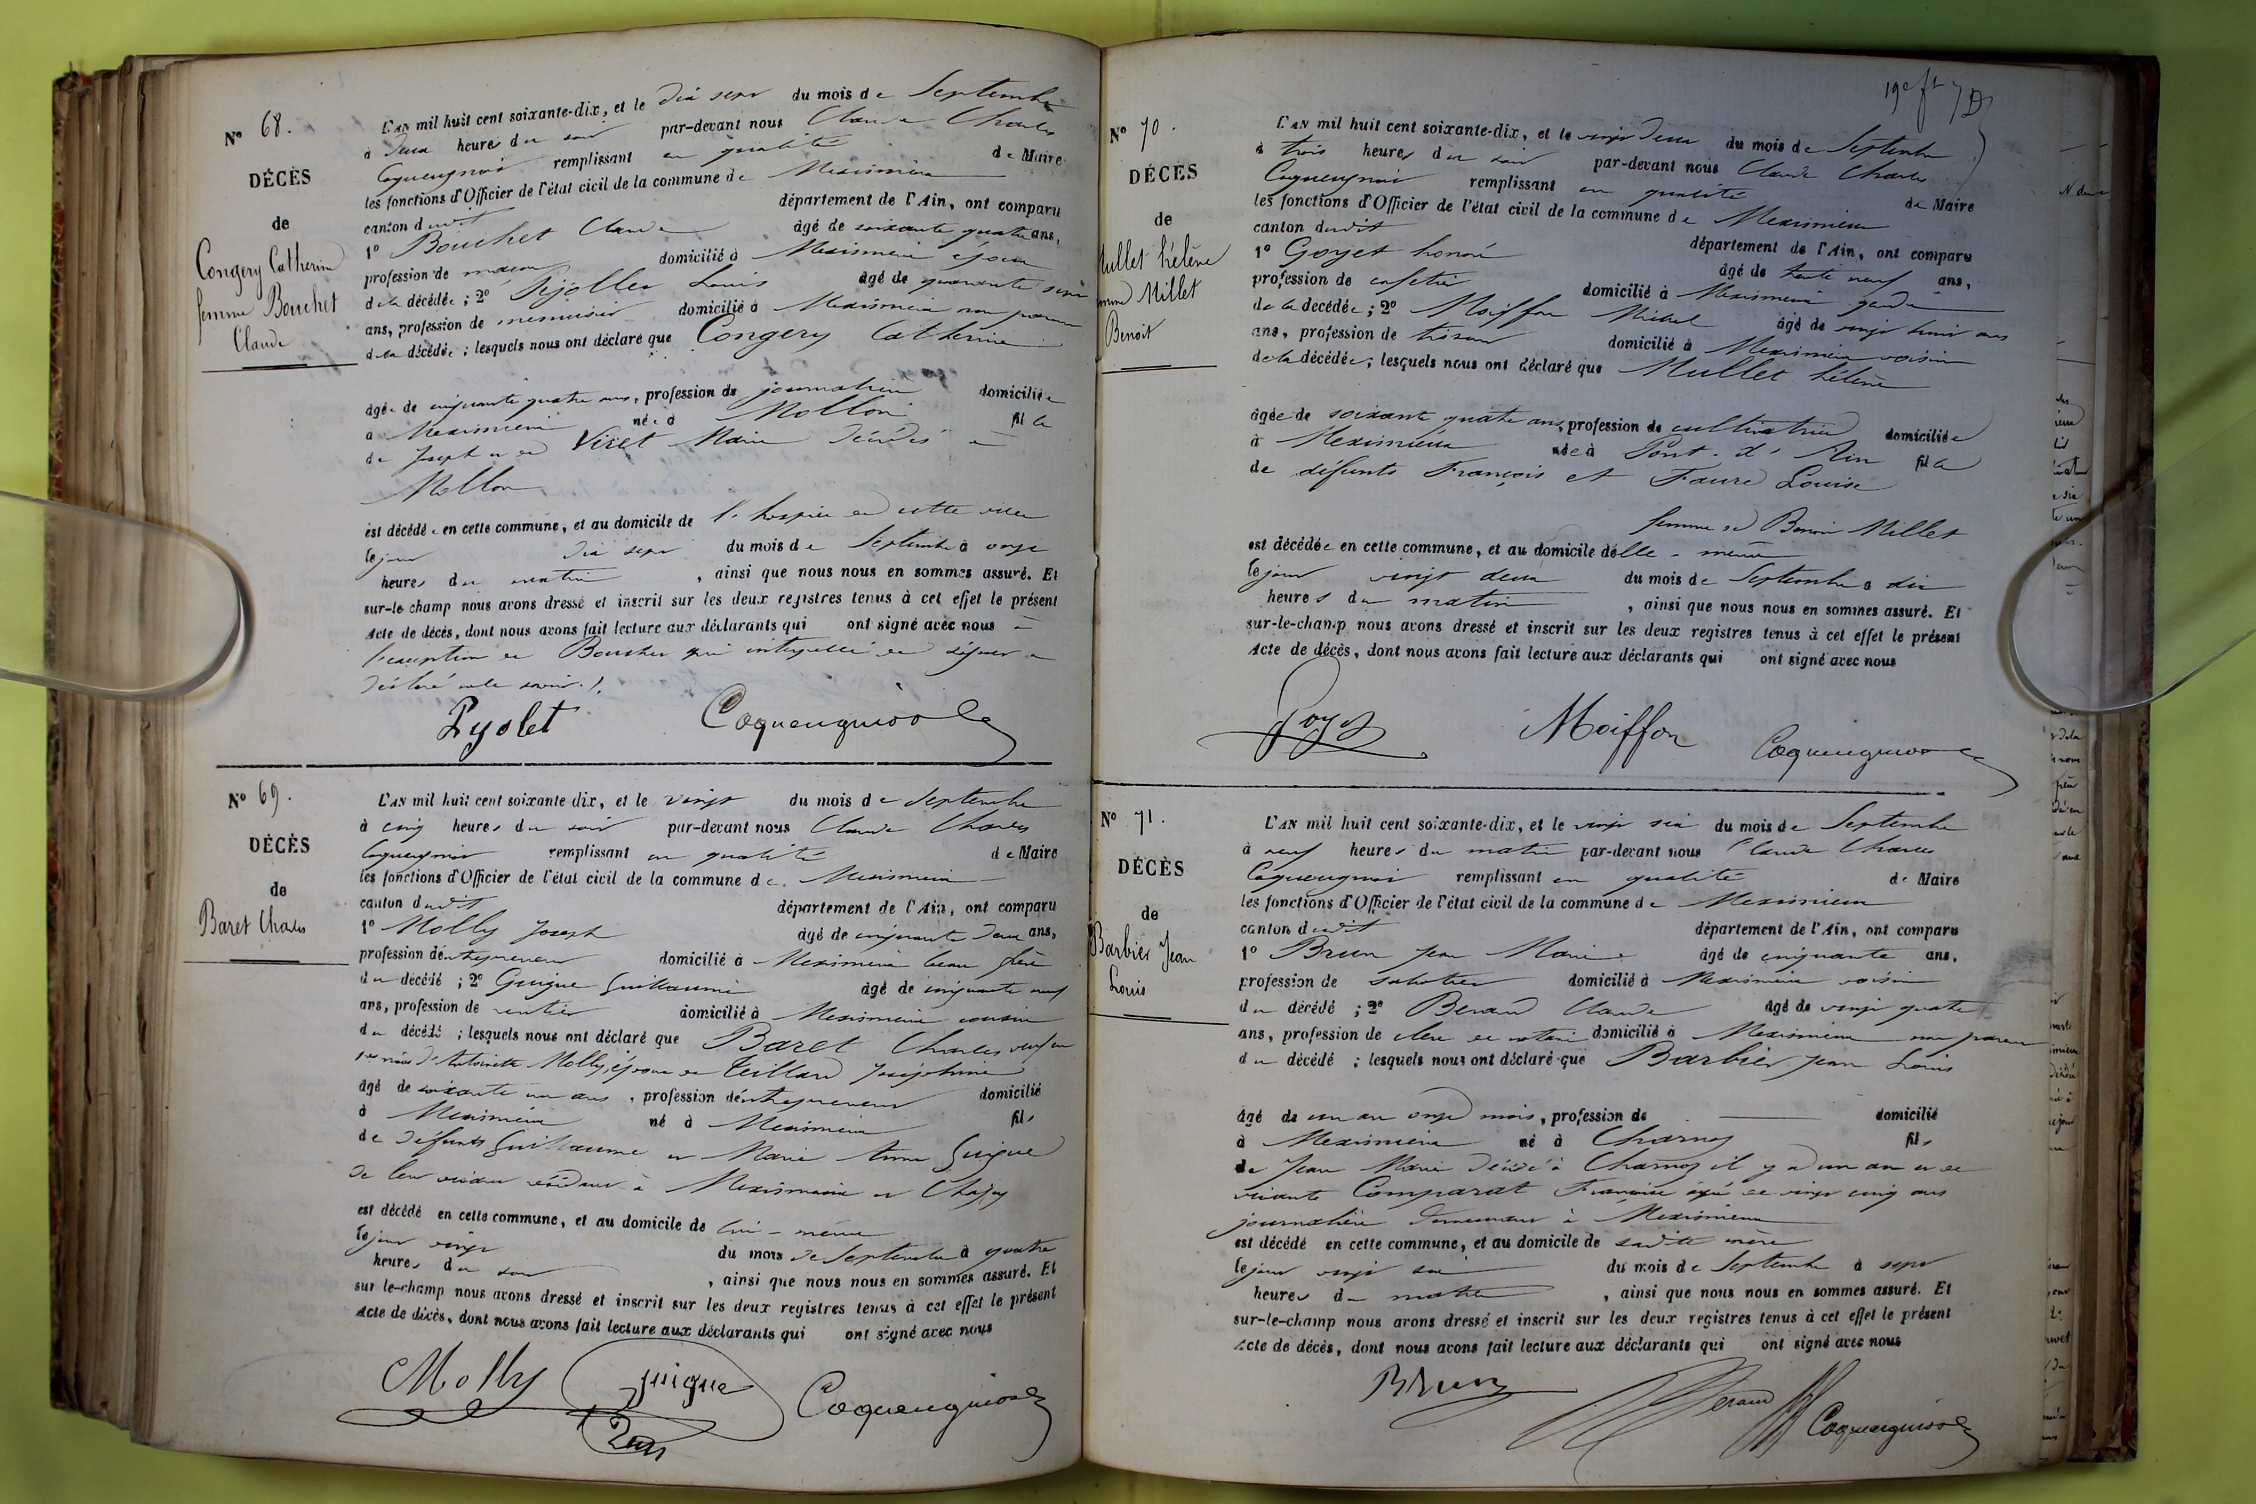 N° 68.
DÉCÈS
de
Congery Catherine
femme Bouchet
Claude
L'AN mil huit cent soixante-dix, et le dix sept du mois de Septembre
à deux heures du soir par-devant nous Claude Charles
Coqueugniot remplissant en qualité de Maire
les fonctions d'Officier de l'état civil de la commune de Meximieux
canton dudit département de l'Ain, ont comparu
1° Bouchet Claude âgé de soixante quatre ans,
profession de maçon domicilié à Meximieux époux
de la décédée ; 2° Louis âgé de quarante sept
ans, profession de menuisier domicilié à Meximieux non parent
de la décédée ; lesquels nous ont déclaré que Congery Catherine
âgée de cinquante quatre ans, profession de journalière domiciliée
à Meximieux née à Mollon fille
de Joseph et de Viret Marie décédés à
Mollon
est décédée en cette commune, et au domicile de l'hospice de cette ville
le jour dix sept du mois de Septembre à onze
heures du matin, ainsi que nous nous en sommes assuré. Et
sur-le champ nous avons dressé et inscrit sur les deux registres tenus à cet effet le présent
Acte de décès, dont nous avons fait lecture aux déclarants qui ont signé avec nous à
l'exception de Bouchet qui interpellé de signer a
déclaré ne le savoir.
Pyolet Coqueugniot
N° 69.
DÉCÈS
de
Baret Charles
L'AN mil huit cent soixante dix, et le vingt du mois de Septembre
à cinq heures du soir par-devant nous Claude Charles
Coqueugniot remplissant en qualité de Maire
les fonctions d'Officier de l'état civil de la commune de Meximieux
canton dudit département de l'Ain, ont comparu
1° Molly Joseph âgé de cinquante deux ans,
profession d'entrepreneur domicilié à Meximieux beau frère
du décédé ; 2° Guigue Guillaume âgé de cinquante neuf
ans, profession de rentier domicilié à Meximieux cousin
du décédé ; lesquels nous ont déclaré que Baret Charles veuf en
1res noces d'Antoinette Molly, époux de Teillard Joséphine
âgé de soixante un ans, profession d'entrepreneur domicilié
à Meximieux né à Meximieux fils
de défunts Guillaume et Marie Anne Guigue
de leur vivant résidant à Meximieux et
est décédé en cette commune, et au domicile de lui-même
le jour vingt du mois de Septembre à quatre
heures du soir, ainsi que nous nous en sommes assuré. Et
sur le-champ nous avons dressé et inscrit sur les deux registres tenus à cet effet le présent
Acte de décès, dont nous avons fait lecture aux déclarants qui ont signé avec nous
Molly Guigue Coqueugniot
N° 70.
DÉCÈS
de
Mullet hélène
femme Millet
Benoit
L'AN mil huit cent soixante-dix, et le vingt deux du mois de Septembre
à trois heures du soir par-devant nous Claude Charles
Coqueugniot remplissant en qualité de Maire
les fonctions d'Officier de l'état civil de la commune de Meximieux
canton dudit département de l'Ain, ont comparu
1° Goyet honoré âgé de trente neuf ans,
profession de cafetier domicilié à Meximieux gendre
de la décédée ; 2° Moiffon Michel âgé de vingt huit ans
ans, profession de tisseur domicilié à Meximieux voisin
de la décédée ; lesquels nous ont déclaré que Mullet hélène
âgée de soixante quatre ans, profession de cultivatrice domiciliée
à Meximieux née à Pont-d'Ain fille
de défunts François et Faure Louise
femme de Benoit Millet
est décédée en cette commune, et au domicile d'elle-même
le jour vingt deux du mois de Septembre à dix
heures du matin, ainsi que nous nous en sommes assuré. Et
sur-le-champ nous avons dressé et inscrit sur les deux registres tenus à cet effet le présent
Acte de décès, dont nous avons fait lecture aux déclarants qui ont signé avec nous
Goyet Moiffon Coqueugniot
N° 71.
DÉCÈS
de
Barbier Jean
Louis
L'AN mil huit cent soixante-dix, et le vingt six du mois de Septembre
à neuf heures du matin par-devant nous Claude Charles
Coqueugniot remplissant en qualité de Maire
les fonctions d'Officier de l'état civil de la commune de Meximieux
canton dudit département de l'Ain, ont comparu
1° Brun Jean Marie âgé de cinquante ans,
profession de sabotier domicilié à Meximieux voisin
du décédé ; 2° Beraud Claude âgé de vingt quatre
ans, profession de clerc de notaire domicilié à Meximieux non parent
du décédé ; lesquels nous ont déclaré que Barbier Jean Louis
âgé de un an onze mois, profession de domicilié
à Meximieux né à Charnoz fils
de Jean Marie décédé à Charnoz il y a un an et de
vivante Comparat Françoise âgée de vingt cinq ans
journalière demeurant à Meximieux
est décédé en cette commune, et au domicile de sadite mère
le jour vingt six du mois de Septembre à sept
heures du matin, ainsi que nous nous en sommes assuré. Et
sur-le-champ nous avons dressé et inscrit sur les deux registres tenus à cet effet le présent
Acte de décès, dont nous avons fait lecture aux déclarants qui ont signé avec nous
Brun Beraud Coqueugniot